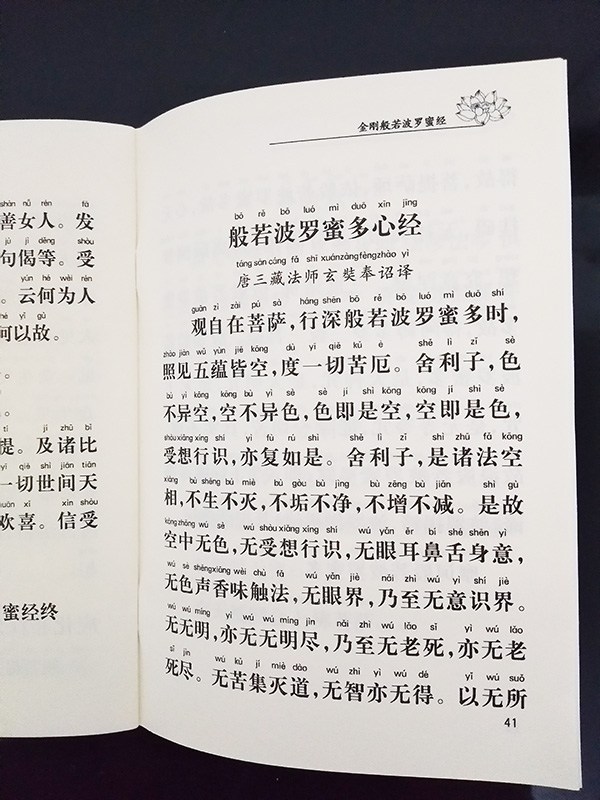 shàn nǚ rén fā
善女人。发
jù jì děng shòu
句偈等。受
yún hé wèi rén
。云何为人
hé yǐ gù
何以故。
tí jí zhū bǐ
提。及诸比
yí qiè shì jiān tiān
一切世间天
huān xǐ xìn shòu
欢喜。信受
蜜经终
金刚般若波罗蜜经
bō rě bō luó mì duō xīn jīng
般若波罗蜜多心经
táng sān cáng fǎ shī xuán zàng fèng zhào yì
唐三藏法师玄奘奉诏译
guān zì zài pú sà háng shēn bō rě bō luó mì duō shí
观自在菩萨,行深般若波罗蜜多时,
zhào jiàn wǔ yùn jiē kōng dù yí qiè kǔ è shě lì zǐ sè
照见五蕴皆空,度一切苦厄。舍利子,色
bù yì kōng kōng bù yì sè sè jí shì kōng kōng jí shì sè
不异空,空不异色,色即是空,空即是色,
shòu xiǎng xíng shí yì fù rú shì shě lì zǐ shì zhū fǎ kōng
受想行识,亦复如是。舍利子,是诸法空
xiàng bù shēng bú miè bú gòu bú jìng bù zēng bù jiǎn shì gù
相,不生不灭,不垢不净,不增不减。是故
kōng zhōng wú sè wú shòu xiǎng xíng shí wú yǎn ěr bí shé shēn yì
空中无色,无受想行识,无眼耳鼻舌身意,
wú sè shēng xiāng wèi chù fǎ wú yǎn jiè nǎi zhì wú yì shí jiè
无色声香味触法,无眼界,乃至无意识界。
wú wú míng yì wú wú míng jìn nǎi zhì wú lǎo sǐ yì wú lǎo
无无明,亦无无明尽,乃至无老死,亦无老
sǐ jìn wú kǔ jí miè dào wú zhì yì wú dé yǐ wú suǒ
死尽。无苦集灭道,无智亦无得。以无所
41